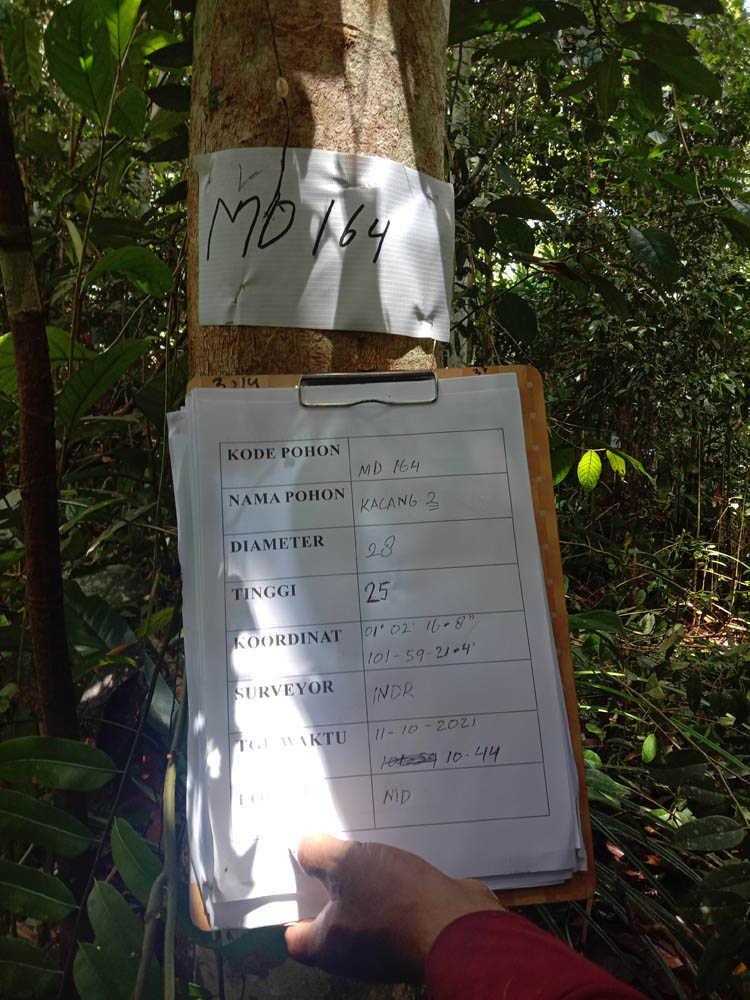 MD 164
KODE POHON MD 164
NAMA POHON KACANG 2
DIAMETER 28
TINGGI 25
KOORDINAT 01° 02' 16.8"
101-59-21.4'
SURVEYOR INDR
TGL WAKTU 11-10-2021
10-44
MD